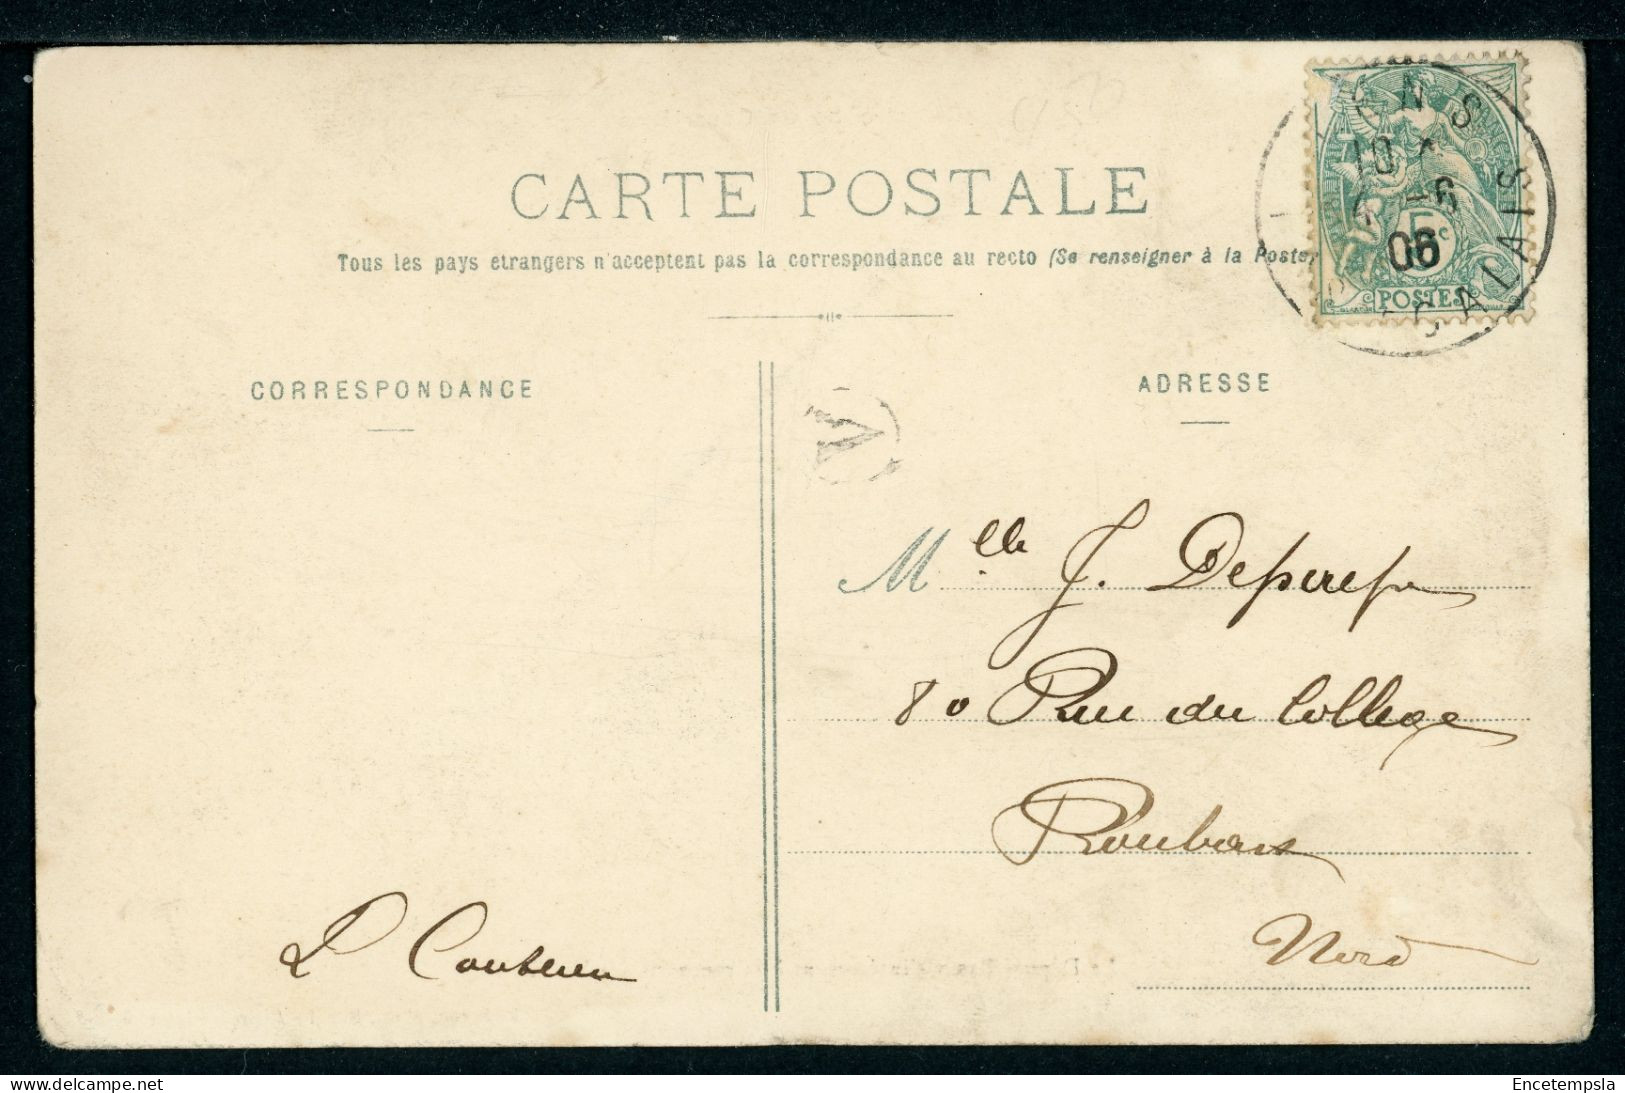 CARTE POSTALE
Tous les pays etrangers n'acceptent pas la correspondance au recto (Se renseigner à la Poste)
CORRESPONDANCE
ADRESSE
ENS
10
-6
06
CALAIS
5c
POSTES
A
Mlle J.
80 Rue du Collège
Roubaix
Nord
L
www.delcampe.net
Encetempsla